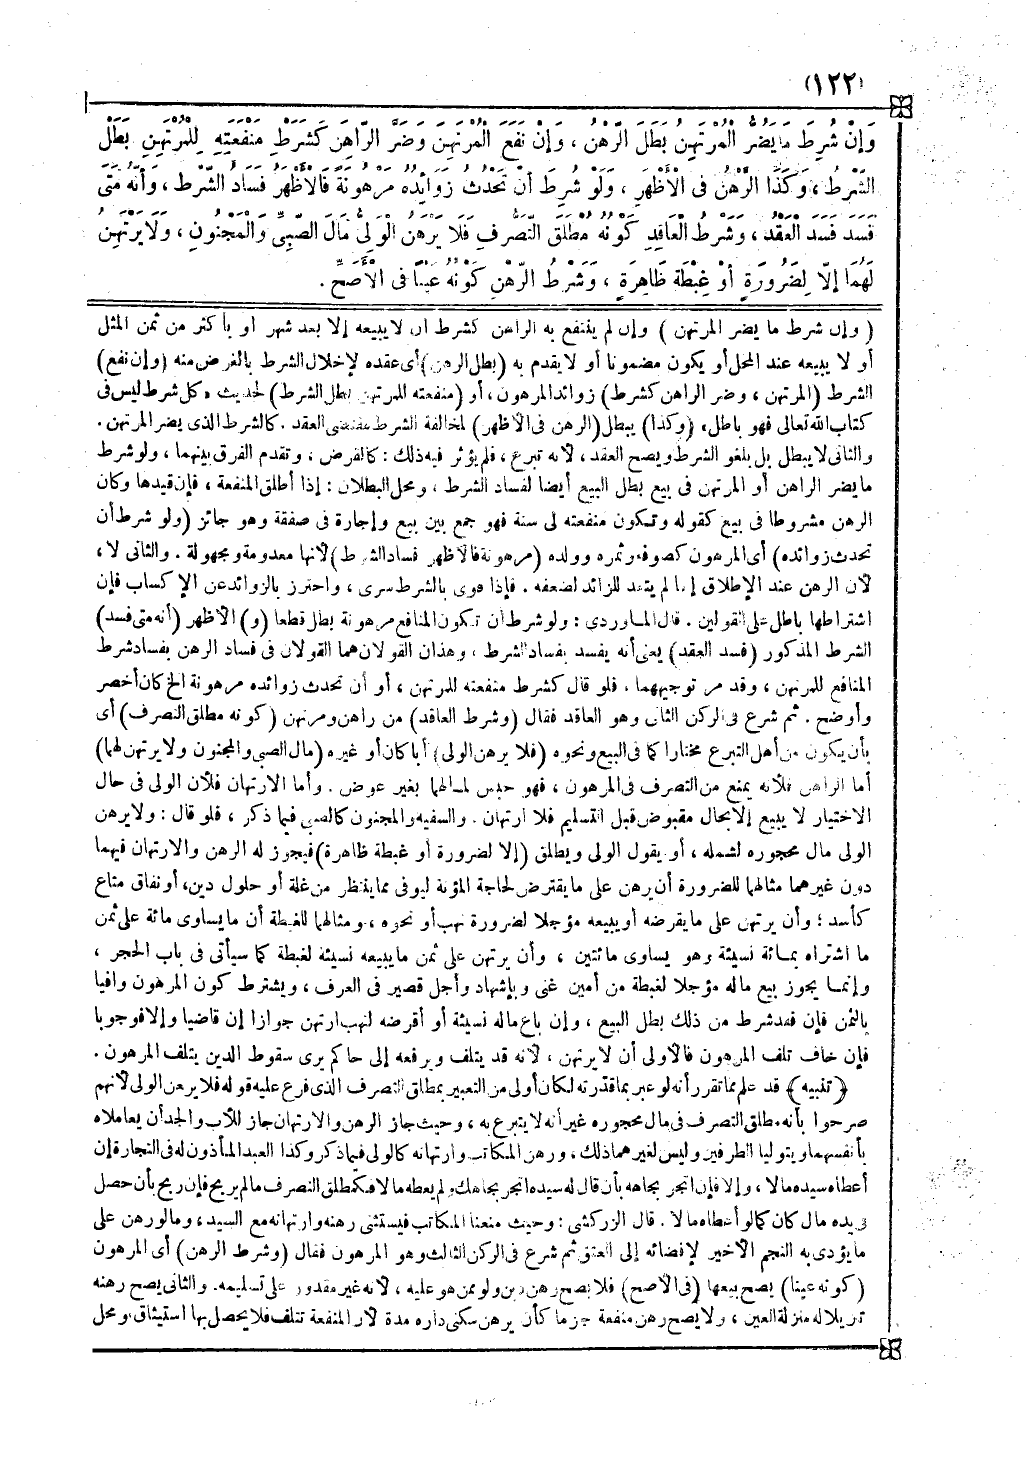 (١٢٢)
وَإِنْ شُرِطَ مَا يَضُرُّ الْمُرْتَهِنَ بَطَلَ الرَّهْنُ ، وَإِنْ نَفَعَ الْمُرْتَهِنَ وَضَرَّ الرَّاهِنَ كَشَرْطِ مَنْفَعَتِهِ لِلْمُرْتَهِنِ بَطَلَ
الشَّرْطُ ، وَكَذَا الرَّهْنُ فِى الْأَظْهَرِ ، وَلَوْ شُرِطَ أَنْ تَحْدُثَ زَوَائِدُهُ مَرْهُونَةً فَالْأَظْهَرُ فَسَادُ الشَّرْطِ ، وَأَنَّهُ مَتَى
فَسَدَ فَسَدَ الْعَقْدُ ، وَشَرْطُ الْعَاقِدِ كَوْنُهُ مُطْلَقَ التَّصَرُّفِ فَلَا يَرْهَنُ الْوَلِىُّ مَالَ الصَّبِىِّ وَالْمَجْنُونِ ، وَلَا يَرْتَهِنُ
لَهُمَا إِلَّا لِضَرُورَةٍ أَوْ غِبْطَةٍ ظَاهِرَةٍ ، وَشَرْطُ الرَّهْنِ كَوْنُهُ عَيْنًا فِى الْأَصَحِّ .
( وإن شرط ما يضر المرتهن ) وإن لم ينتفع به الراهن كشرط أن لا يبيعه إلا بعد شهر أو بأكثر من ثمن المثل
أو لا يبيعه عند المحل أو يكون مضمونا أو لا يقدم به (بطل الرهن) أى عقده لإخلال الشرط بالغرض منه (وإن نفع)
الشرط (المرتهن ، وضر الراهن كشرط) زوائد المرهون ، أو (منفعته للمرتهن بطل الشرط) لحديث «كل شرط ليس فى
كتاب الله تعالى فهو باطل» (وكذا) يبطل (الرهن فى الأظهر) لمخالفة الشرط مقتضى العقد . كالشرط الذى يضر المرتهن .
والثانى لا يبطل بل يلغو الشرط ويصح العقد ، لأنه تبرع ، فلم يؤثر فيه ذلك : كالقرض ، وتقدم الفرق بينهما ، ولو شرط
ما يضر الراهن أو المرتهن فى بيع بطل البيع أيضا لفساد الشرط ، ومحل البطلان : إذا أطلق المنفعة ، فإن قيدها وكان
الرهن مشروطا فى بيع كقوله وتكون منفعته لى سنة فهو جمع بين بيع وإجارة فى صفقة وهو جائز (ولو شرط أن
تحدث زوائده) أى المرهون كصوفه وثمره وولده (مرهونة فالأظهر فساد الشرط) لأنها معدومة ومجهولة . والثانى لا ،
لأن الرهن عند الإطلاق إنما لم يتعد للزائد لضعفه . فإذا قوى بالشرط سرى ، واحترز بالزوائد عن الأكساب فإن
اشتراطها باطل على القولين . قال الماوردى : ولو شرط أن تكون المنافع مرهونة بطل قطعا (و) الأظهر (أنه متى فسد)
الشرط المذكور (فسد العقد) يعنى أنه يفسد بفساد الشرط ، وهذان القولان هما القولان فى فساد الرهن بفساد شرط
المنافع للمرتهن ، وقد مر توجيههما ، فلو قال كشرط منفعته للمرتهن ، أو أن تحدث زوائده مرهونة الخ كان أخصر
وأوضح . ثم شرع فى الركن الثانى وهو العاقد فقال (وشرط العاقد) من راهن ومرتهن (كونه مطلق التصرف) أى
بأن يكون من أهل التبرع مختارا كما فى البيع ونحوه (فلا يرهن الولى) أبا كان أو غيره (مال الصبى والمجنون ولا يرتهن لهما)
أما الراهن فلأنه يمنع من التصرف فى المرهون ، فهو حبس لمالهما بغير عوض . وأما الارتهان فلأن الولى فى حال
الاختيار لا يبيع إلا بحال مقبوض قبل التسليم فلا ارتهان . والسفيه والمجنون كالصبى فيما ذكر ، فلو قال : ولا يرهن
الولى مال محجوره لشمله ، أو يقول الولى ويطلق (إلا لضرورة أو غبطة ظاهرة) فيجوز له الرهن والارتهان فيهما
دون غيرهما مثالهما للضرورة أن يرهن على ما يقترض لحاجة المؤنة ليوفى مما ينتظر من غلة أو حلول دين ، أو نفاق متاع
كأسد ؛ وأن يرتهن على ما يقرضه أو يبيعه مؤجلا لضرورة نهب أو نحوه ، ومثالهما للغبطة أن ما يساوى مائة على ثمن
ما اشتراه بمائة نسيئة وهو يساوى مائتين ، وأن يرتهن على ثمن ما يبيعه نسيئة لغبطة كما سيأتى فى باب الحجر ،
وإنما يجوز بيع ماله مؤجلا لغبطة من أمين غنى وبإشهاد وأجل قصير فى العرف ، ويشترط كون المرهون وافيا
بالثمن فإن فقد شرط من ذلك بطل البيع ، وإن باع ماله نسيئة أو أقرضه لنهب ارتهن جوازا إن قاضيا وإلا فوجوبا
فإن خاف تلف المرهون فالأولى أن لا يرتهن ، لأنه قد يتلف ويرفعه إلى حاكم يرى سقوط الدين بتلف المرهون .
﴿ تنبيه ﴾ قد علم مما تقرر أنه لو عبر بما قدرته لكان أولى من التعبير بمطلق التصرف الذى فرع عليه قوله فلا يرهن الولى لأنهم
صرحوا بأنه مطلق التصرف فى مال محجوره غير أنه لا يتبرع به ، وحيث جاز الرهن والارتهان جاز للأب والجد أن يعاملاه
بأنفسهما ويتوليا الطرفين وليس لغيرهما ذلك ، ورهن المكاتب وارتهانه كالولى فيما ذكر وكذا العبد المأذون له فى التجارة إن
أعطاه سيده مالا ، وإلا فإن اتجر بجاهه بأن قال له سيده اتجر بجاهك ولم يعطه مالا فكمطلق التصرف ما لم يربح فإن ربح بأن حصل
فى يده مال كان كما لو أعطاه مالا . قال الزركشى : وحيث منعنا المكاتب فيستثنى رهنه وارتهانه مع السيد ، وما لو رهن على
ما يؤدى به النجم الأخير لإفضائه إلى العتق ثم شرع فى الركن الثالث وهو المرهون فقال (وشرط الرهن) أى المرهون
(كونه عينا) يصح بيعها (فى الأصح) فلا يصح رهن دين ولو ممن هو عليه ، لأنه غير مقدور على تسليمه . والثانى يصح رهنه
تنزيلا له منزلة العين ، ولا يصح رهن منفعة جزما كأن يرهن سكنى داره مدة لأن المنفعة تتلف فلا يحصل بها استيثاق ، ومحل